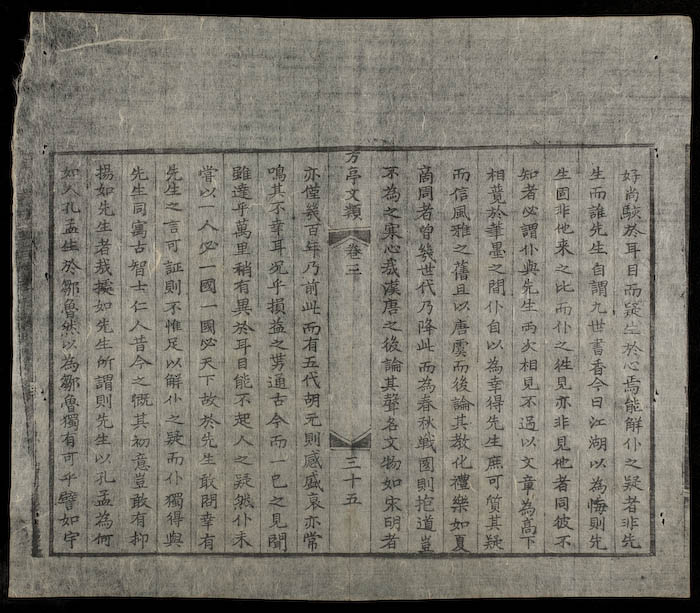 好尚駭於耳目而疑生於心焉能解仆之疑者非先
生而誰先生自謂九世書香今日江湖以為悔則先
生固非他来之比而仆之徃見亦非見他者同彼不
知者必謂仆與先生两次相見不過以文章為高下
相競於筆墨之間仆自以為幸得先生庶可質其疑
而信風雅之舊且以唐虞而後論其教化禮樂如夏
商周者曾幾世代乃降此而為春秋戦國則抱道豈
不為之寒心哉漢唐之後論其聲名文物如宋明者
方亭文類 卷三 三十五
亦僅幾百年乃前此而有五代胡元則感盛哀亦常
鳴其不幸耳况乎損益之势通古今而一已之見聞
雖達乎萬里稍有異於耳目能不起人之疑然仆未
嘗以一人必一國一國必天下故於先生敢問幸有
先生之言可証則不惟足以解仆之疑而仆獨得與
先生同寓古智士仁人昔今之慨其初意豈敢有抑
揚如先生者哉擬如先生所謂則先生以孔孟為何
如人孔孟生於鄒魯然以為鄒魯獨有可乎譬如宇